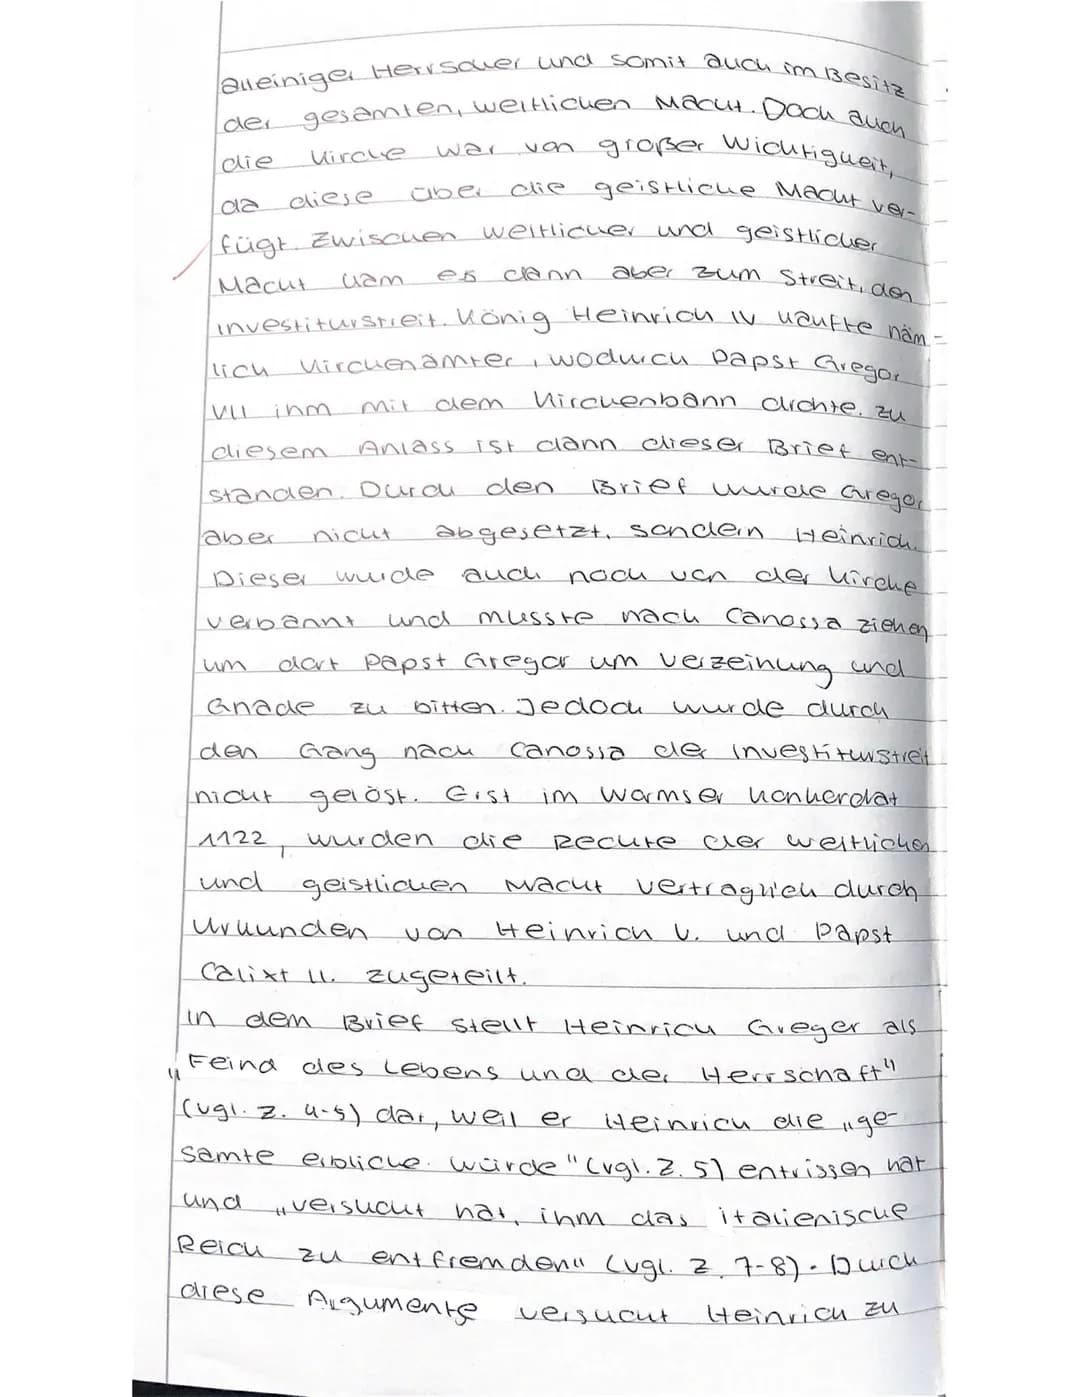 alleiniger Herrscher und somit auch im Besitz
der gesamten, weltlichen Macht. Doch auch
die Kirche war von großer Wichtigkeit,
da diese über die geistliche Macht ver-
fügt. Zwischen weltlicher und geistlicher
Macht kam es dann aber zum Streit, den
Investiturstreit. König Heinrich IV kaufte näm-
lich Kirchenämter, wodurch Papst Gregor
VII ihm mit dem Kirchenbann drohte. Zu
diesem Anlass ist dann dieser Brief ent-
standen. Durch den Brief wurde Gregor
aber nicht abgesetzt, sondern Heinrich.
Dieser wurde auch noch von der Kirche
verbannt und musste nach Canossa ziehen
um dort Papst Gregor um Verzeihung und
Gnade zu bitten. Jedoch wurde durch
den Gang nach Canossa der Investiturstreit
nicht gelöst. Erst im Wormser Konkordat
1122, wurden die Rechte der weltlichen
und geistlichen Macht vertraglich durch
Urkunden von Heinrich V. und Papst
Calixt II. zugeteilt.
In dem Brief stellt Heinrich Greger als
„Feind des Lebens und der Herrschaft"
(vgl. Z. 4-5) dar, weil er Heinrich die „ge-
samte erbliche Würde" (vgl. Z. 5) entrissen hat
und „versucht hat, ihm das italienische
Reich zu entfremden" (vgl. Z. 7-8). Durch
diese Argumente versucht Heinrich zu